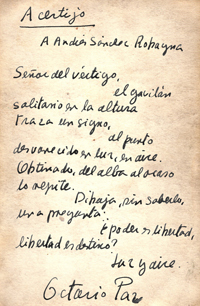 Acertijo
A Andrés Sánchez Robayna
Señor del vértigo,
el gavilán
solitario en la altura
traza un signo,
al punto
desvanecido en luz, en aire.
Obstinado, del alba al ocaso
lo repite.
Dibuja, sin saberlo,
una pregunta:
¿poder es libertad,
libertad es destino?
Luz y aire.
Octavio Paz